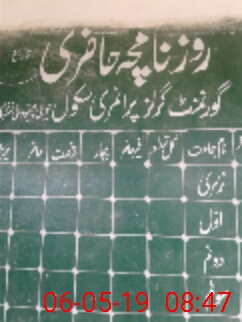 روزنامچہ حاضری
گورنمنٹ گرلز پرائمری سکول
نام جماعت کل تعداد غیر حاضر بیمار رخصت حاضر
نرسری
اوّل
دوئم
06-05-19 08:47